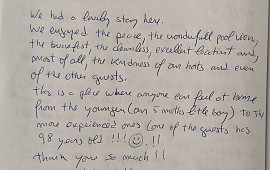 We had a lovely stay here.
We engaged the peace, the wonderfull pool view,
the , the cleanless, excellent and
most of all, the kindness of our hosts and even
of the other guests.
This is a place where anyone can feel at home
from the younger (our 5 moths little boy) to the
more experienced ones (one of the guests has
98 years old !!! ☺ !!
Thank you so much !!